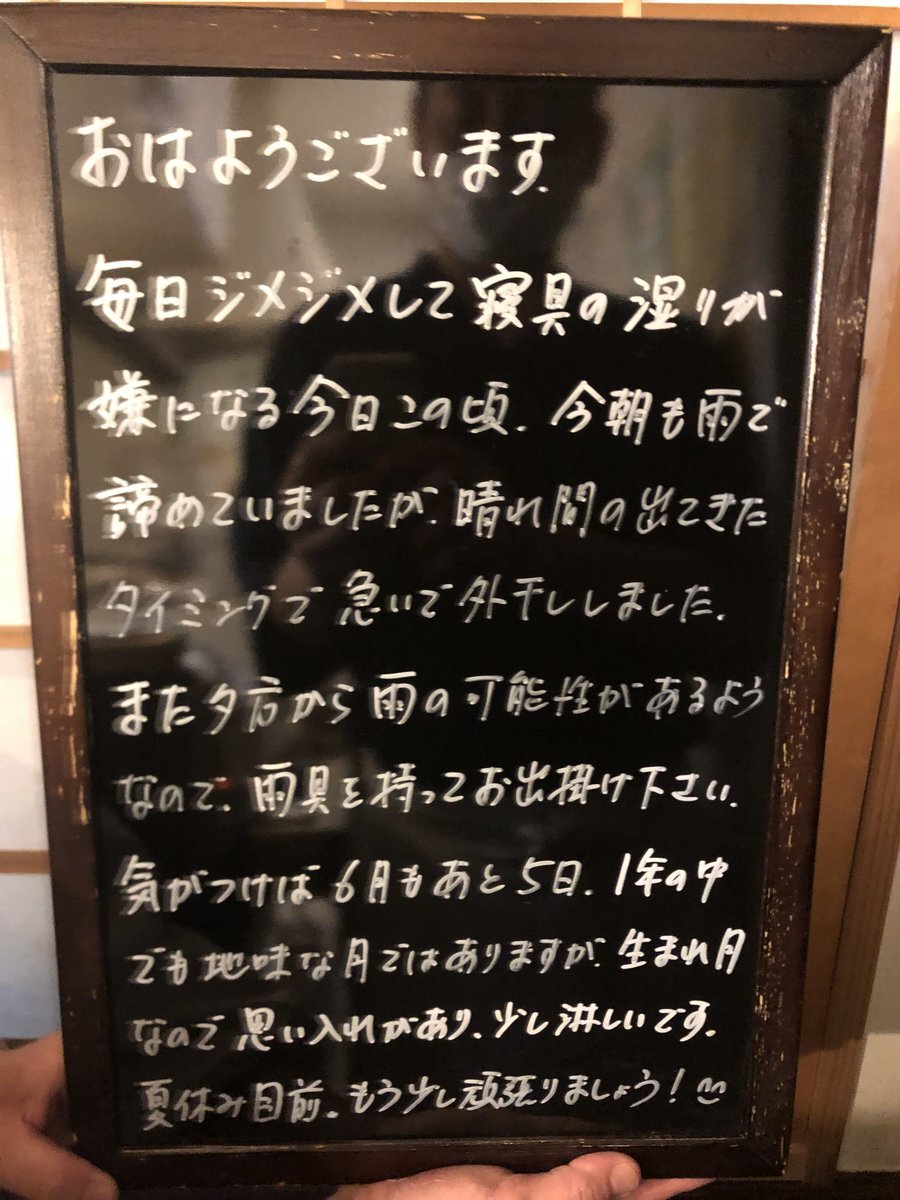 おはようございます.
毎日ジメジメして寝具の湿りが
嫌になる今日この頃. 今朝も雨で
諦めていましたが、晴れ間の出てきた
タイミングで急いで外干ししました.
また夕方から雨の可能性があるよう
なので、雨具を持ってお出掛け下さい.
気がつけば6月もあと5日. 1年の中
でも地味な月ではありますが、生まれ月
なので思い入れがあり、少し淋しいです.
夏休み目前. もう少し頑張りましょう!